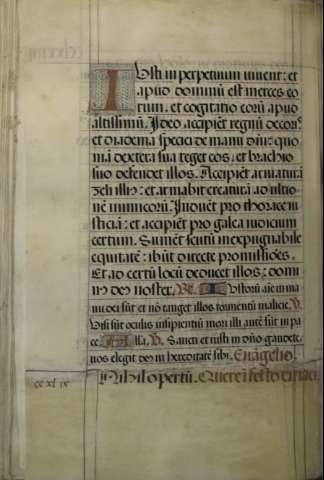 Iusti in perpetuum vivent: et
apud dominū est merces eo
rum. et cogitatio eorū apud
altissimū. Ideo accipiēt regnū decoris
et diadema speciei de manu dn̄i: quo
niā dextera sua teget eos. et brachio
suo defendet illos. Accipiet armaturā
zeli illiꝰ: et armabit creaturā ad ultio
nē inimicorū. Induet pro thorace iu
sticiā: et accipiet pro galea iudicium
certum. Sumet scutū inexpugnabile
equitatē: ibūt directe promissiōes.
Et ad certū locū deducet illos: domi
nꝰ deꝰ noster. Re. Iustorū aīe in ma
nu dei sūt et nō tanget illos tormentū malicie. V.
Visi sūt oculis insipientiū mori illi autē sūt in pa
ce. Alla. V. Sancti et iusti in dn̄o gaudete,
vos elegit deꝰ in hereditatē sibi. Evāgelio.
Nihil opertū. Quere ī festo
cc xl ix